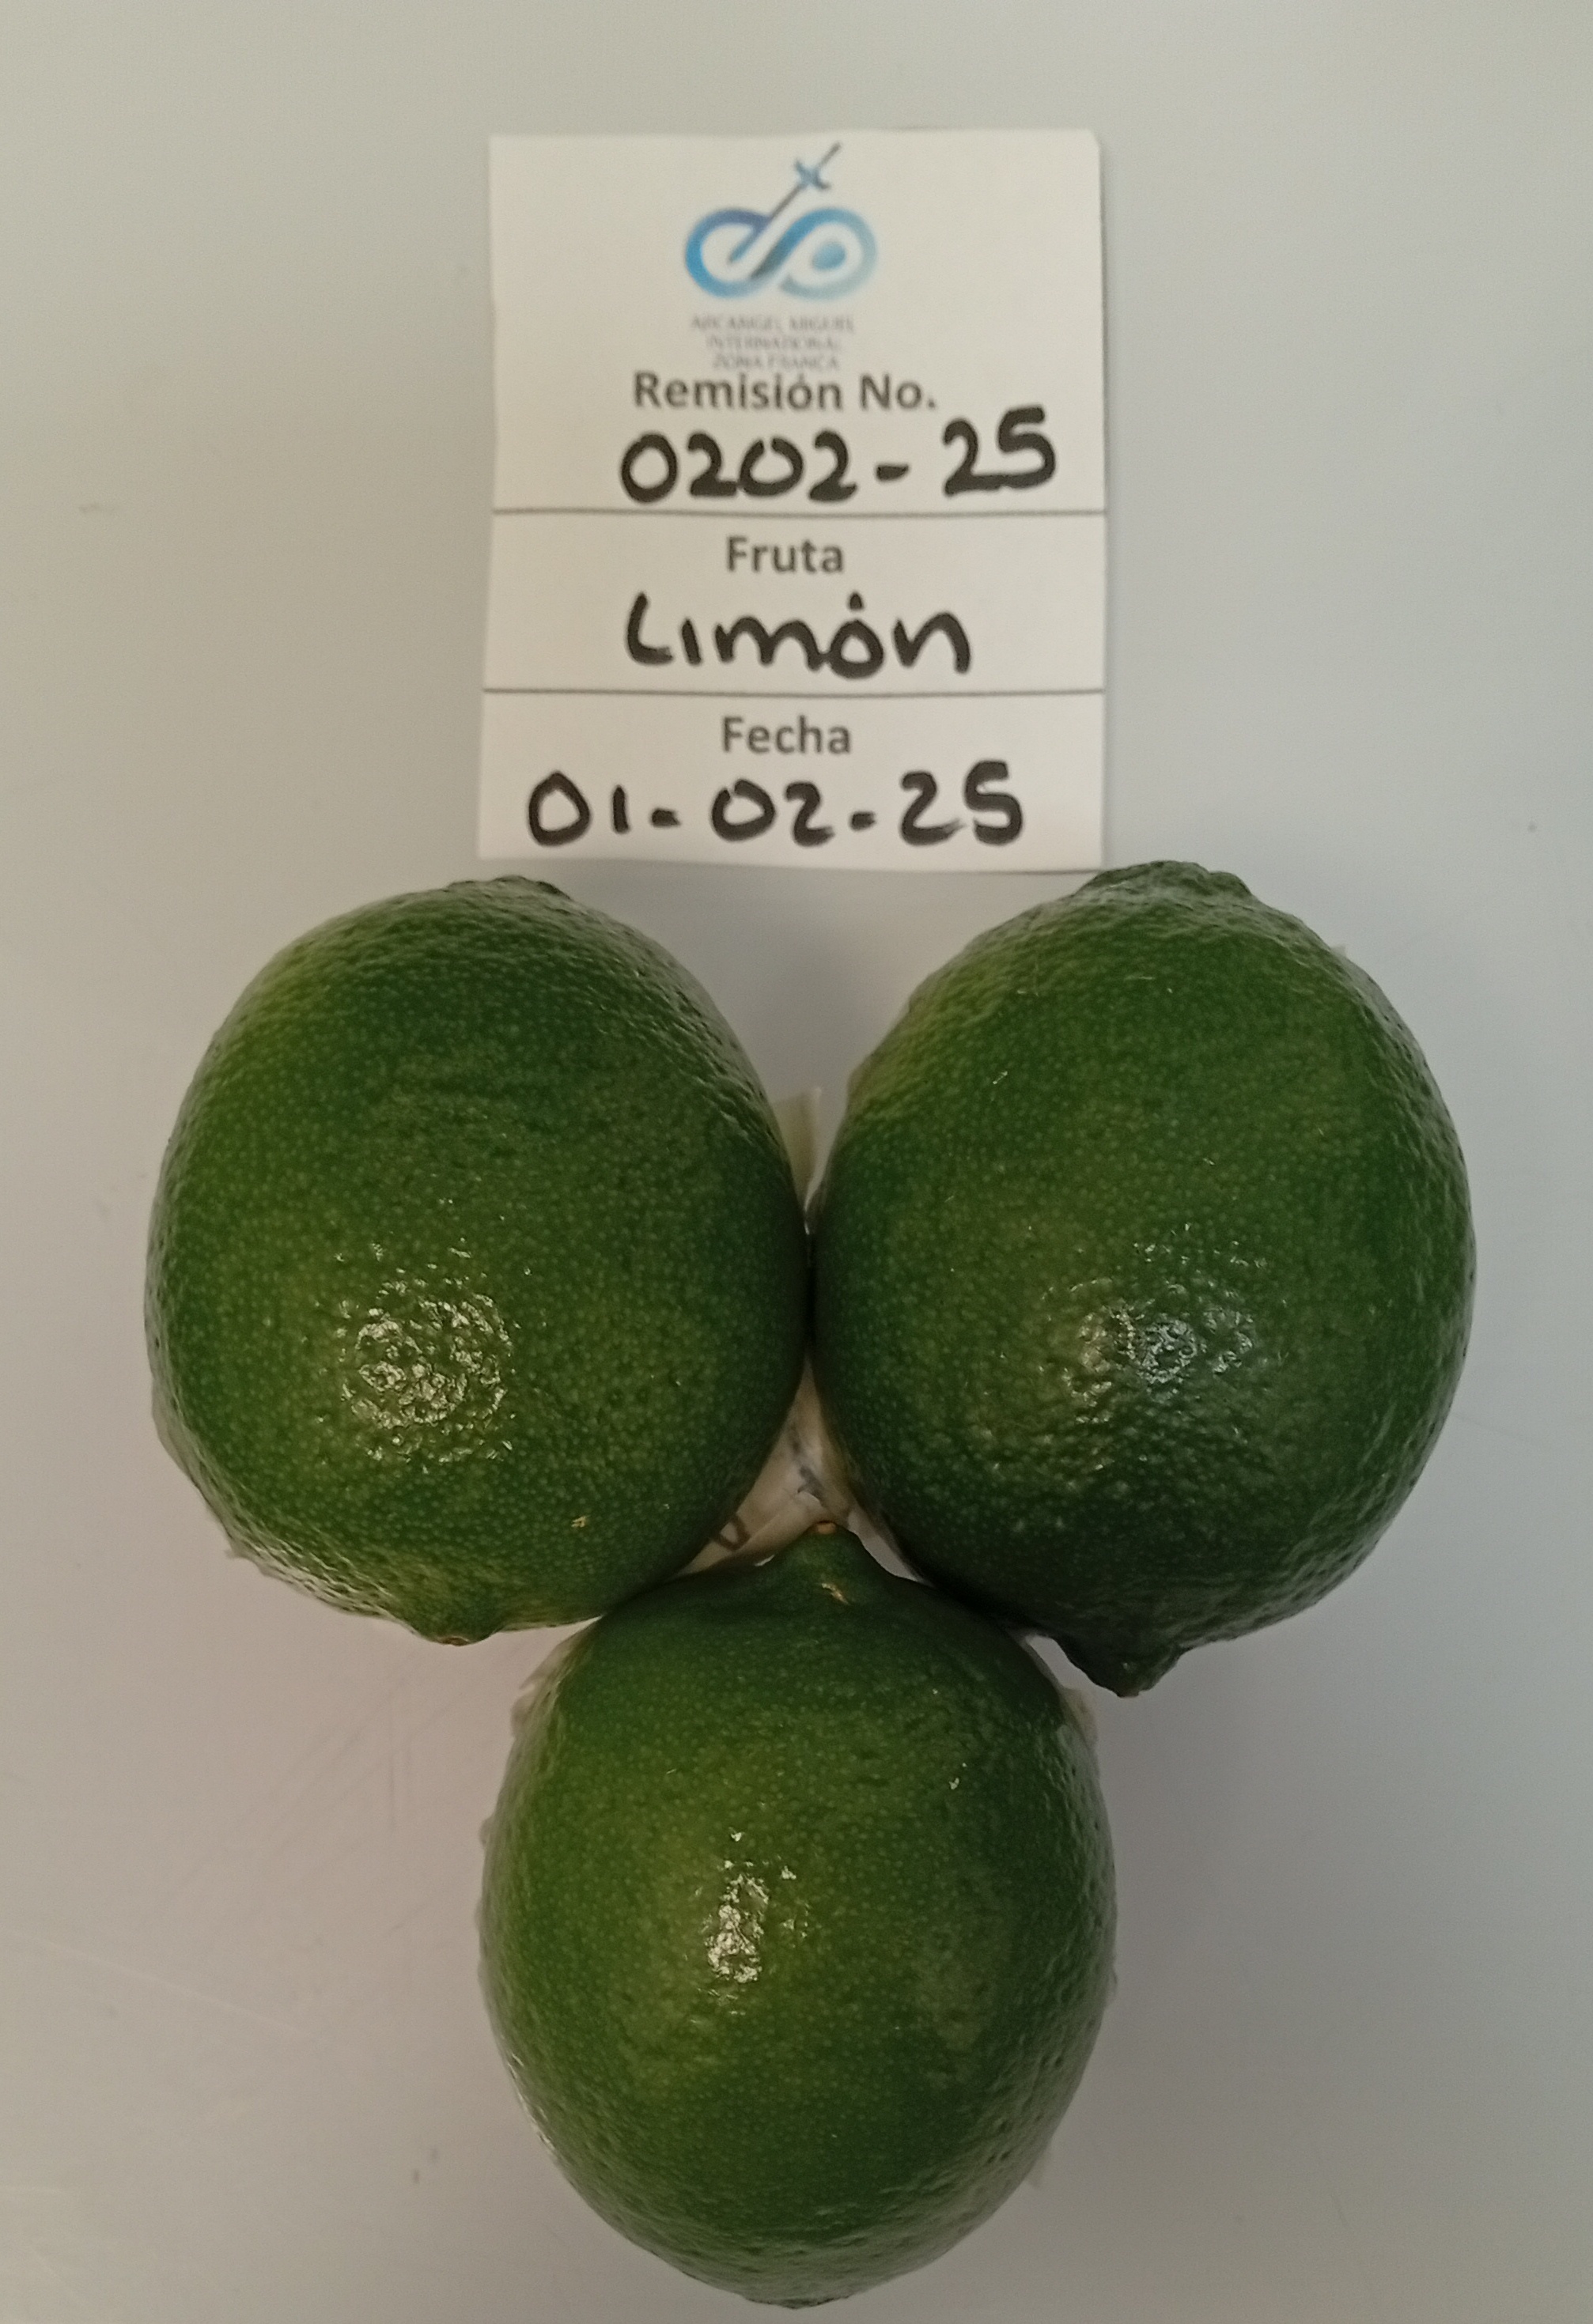 ARCANGEL MIGUEL
INTERNATIONAL
ZONA FRANCA
Remisión No.
0202-25
Fruta
Limón
Fecha
01-02-25